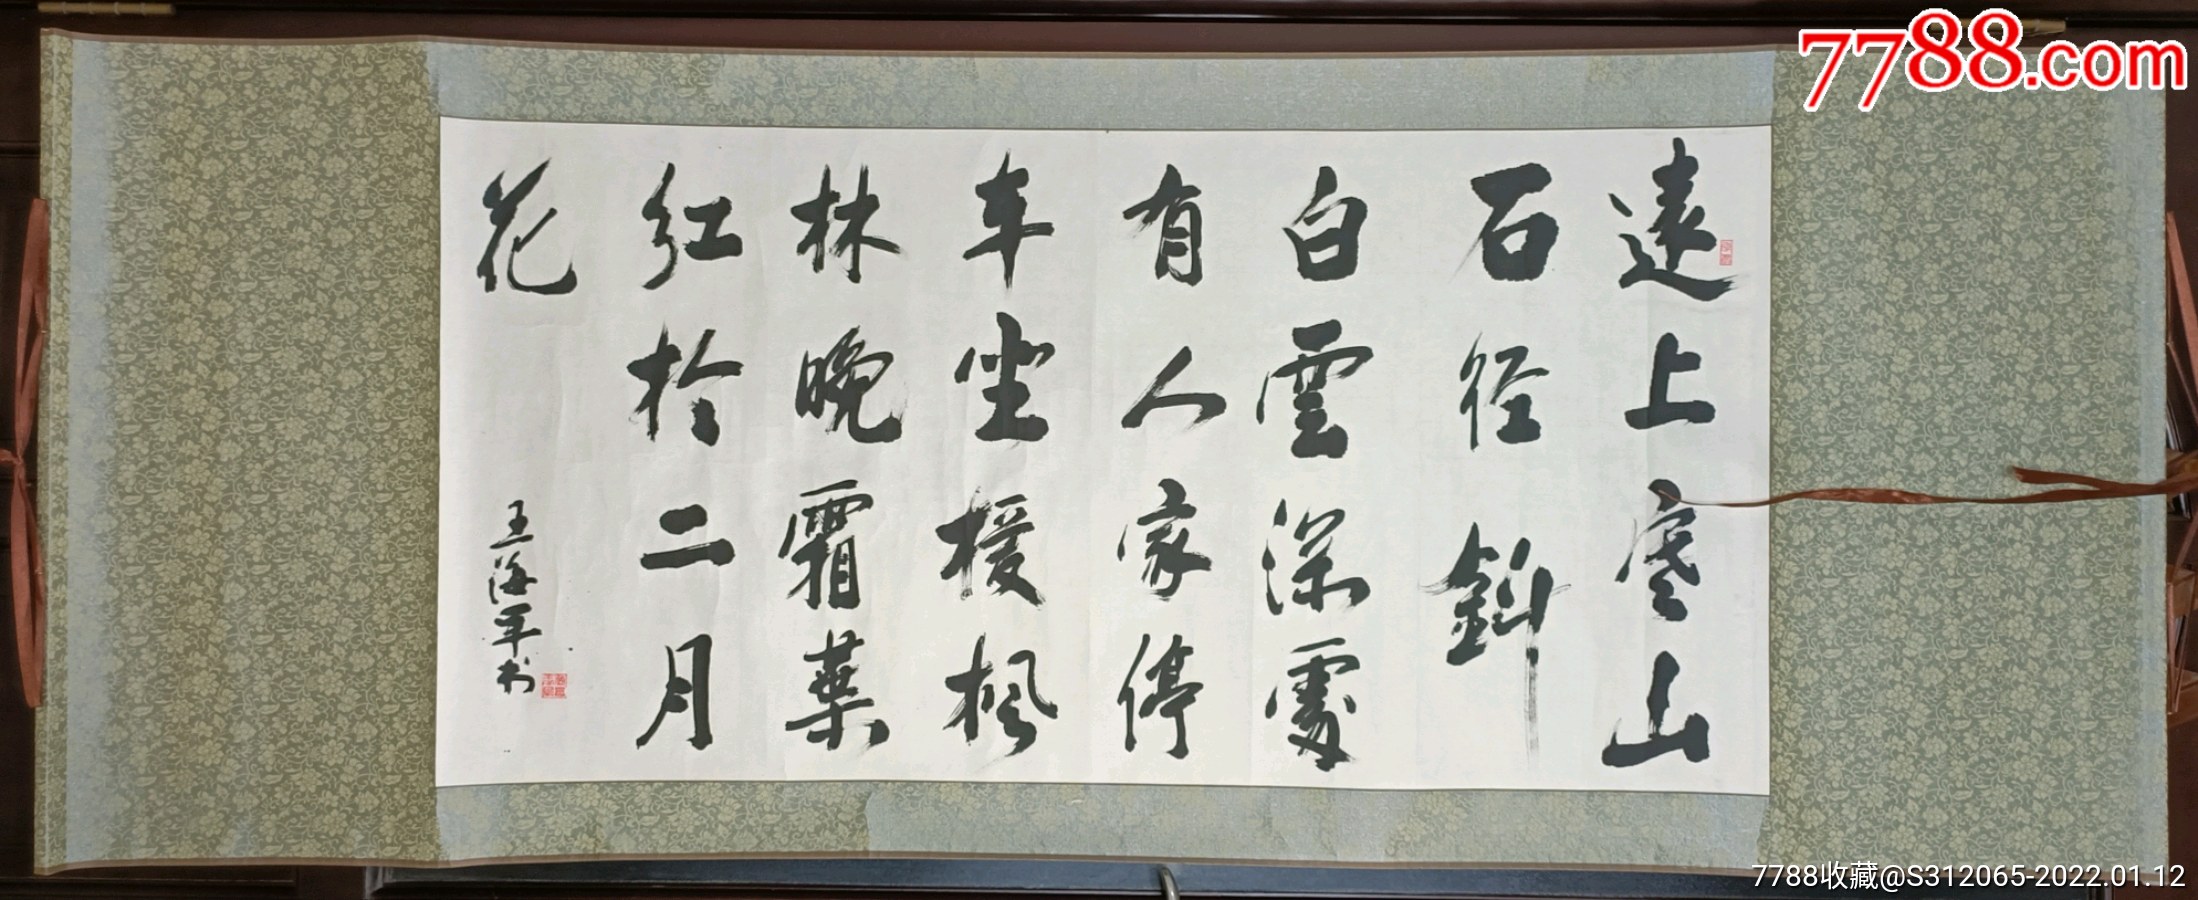 遠上寒山
石径斜
白雲深處
有人家停
车坐楓
林晚霜葉
红於二月
花
王海平书
7788.com
7788收藏@S312065-2022.01.12